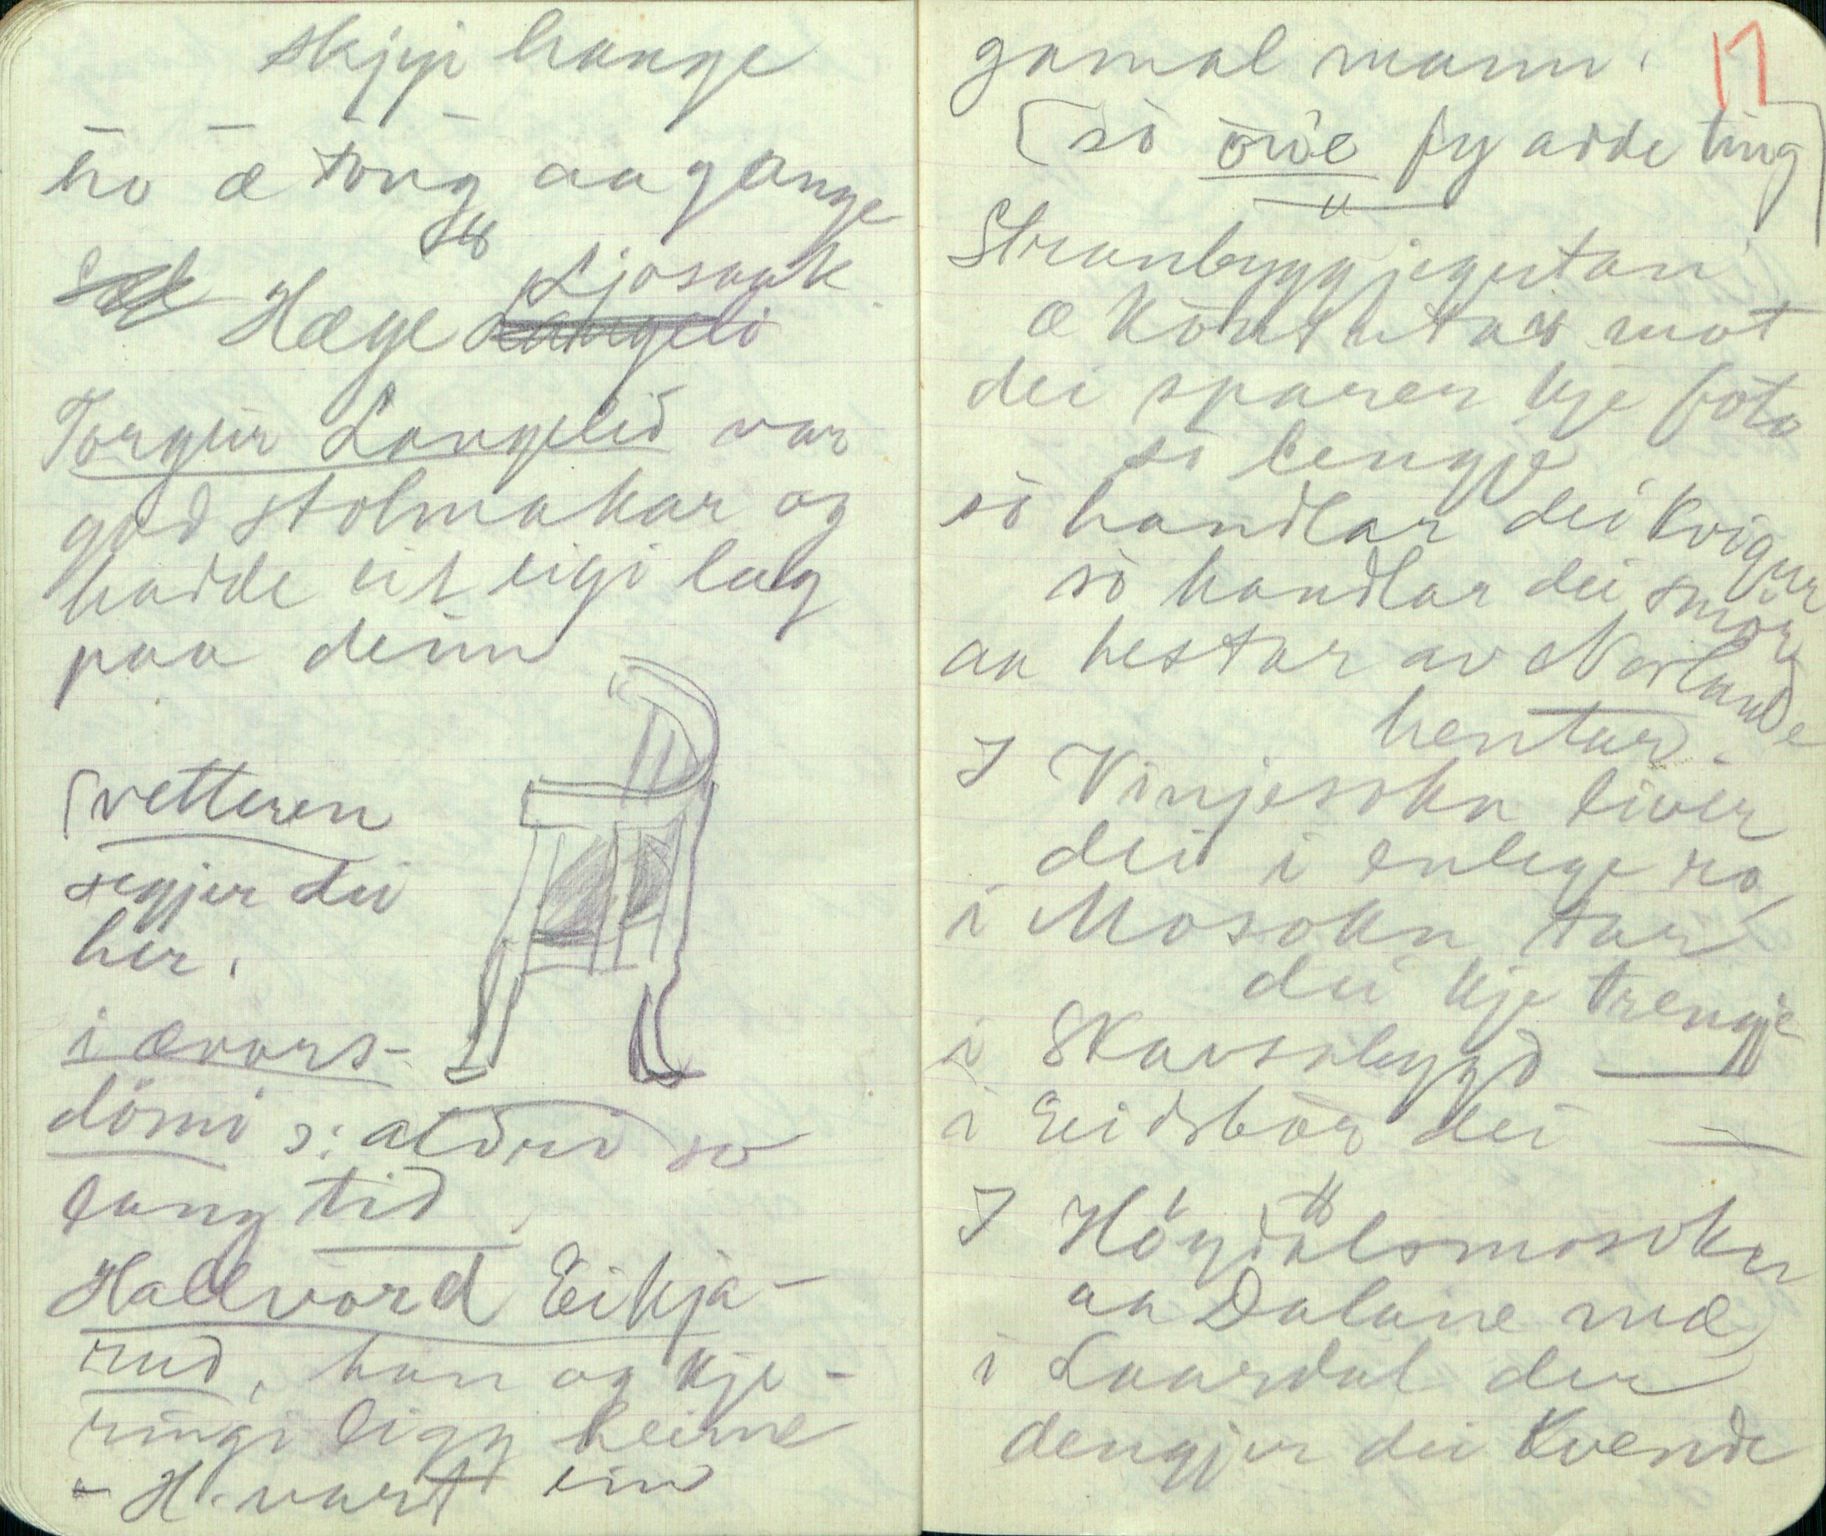 skjyi haage
ho æ tong aa gange
Hæge Ljosaak
Torgeir Langelid var
god stolmakar og
hadde eit eigi lag
paa deim
(vetteren
segjer dei
her.
i ævors-
dömi ɔ: aldri so
lang tid.
Hallvord Eikja-
rud, han og kje-
ringi ligg heime
- H. vart ein
gamal mann.
17
(so övle fy adde ting)
Stranbyggjegutan
æ könstutar mot
dei sparer kje föto
so lengje
so handlar dei kvigur
so handlar dei smör
aa hestar av Norlande
hentar.
I Vinjesokn liver
dei i enlege ro,
i Mosokn tar
dei kje trengje
i Skavsabygd —
i Eidsbör dei —
I Höydalsmosokn
aa Dalane mæ
i Laardal der
dengjer dei Kvende